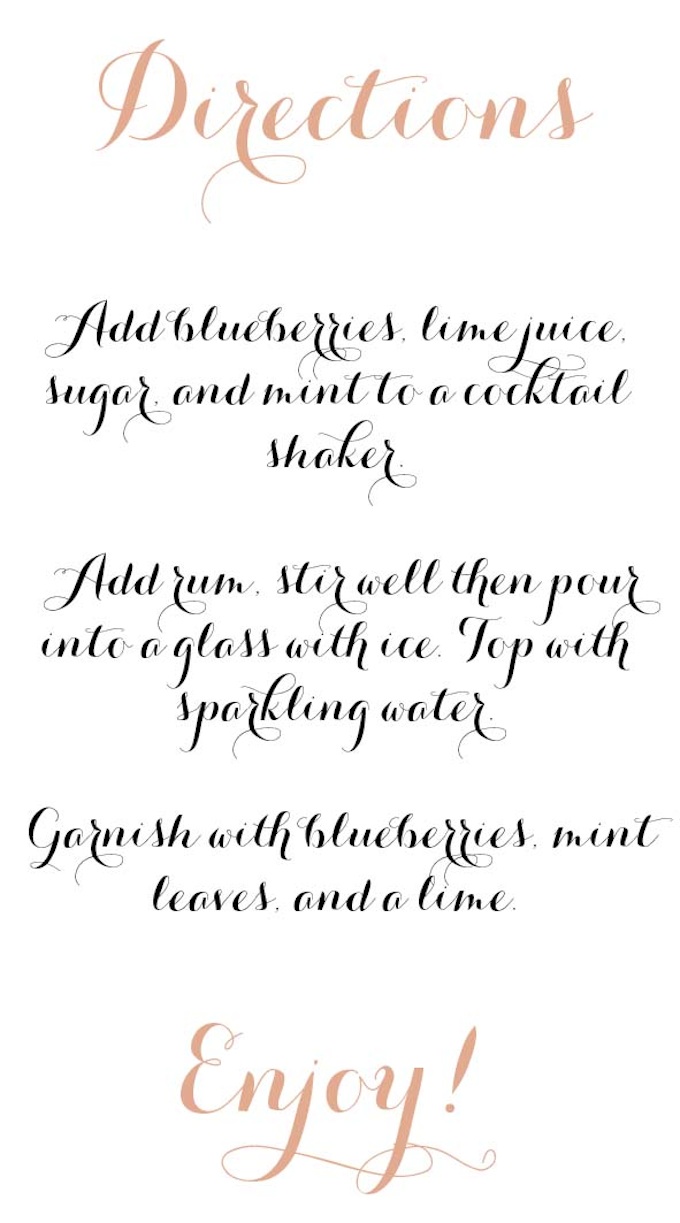 Directions
Add blueberries, lime juice,
sugar, and mint to a cocktail
shaker.
Add rum, stir well then pour
into a glass with ice. Top with
sparkling water.
Garnish with blueberries, mint
leaves, and a lime.
Enjoy!